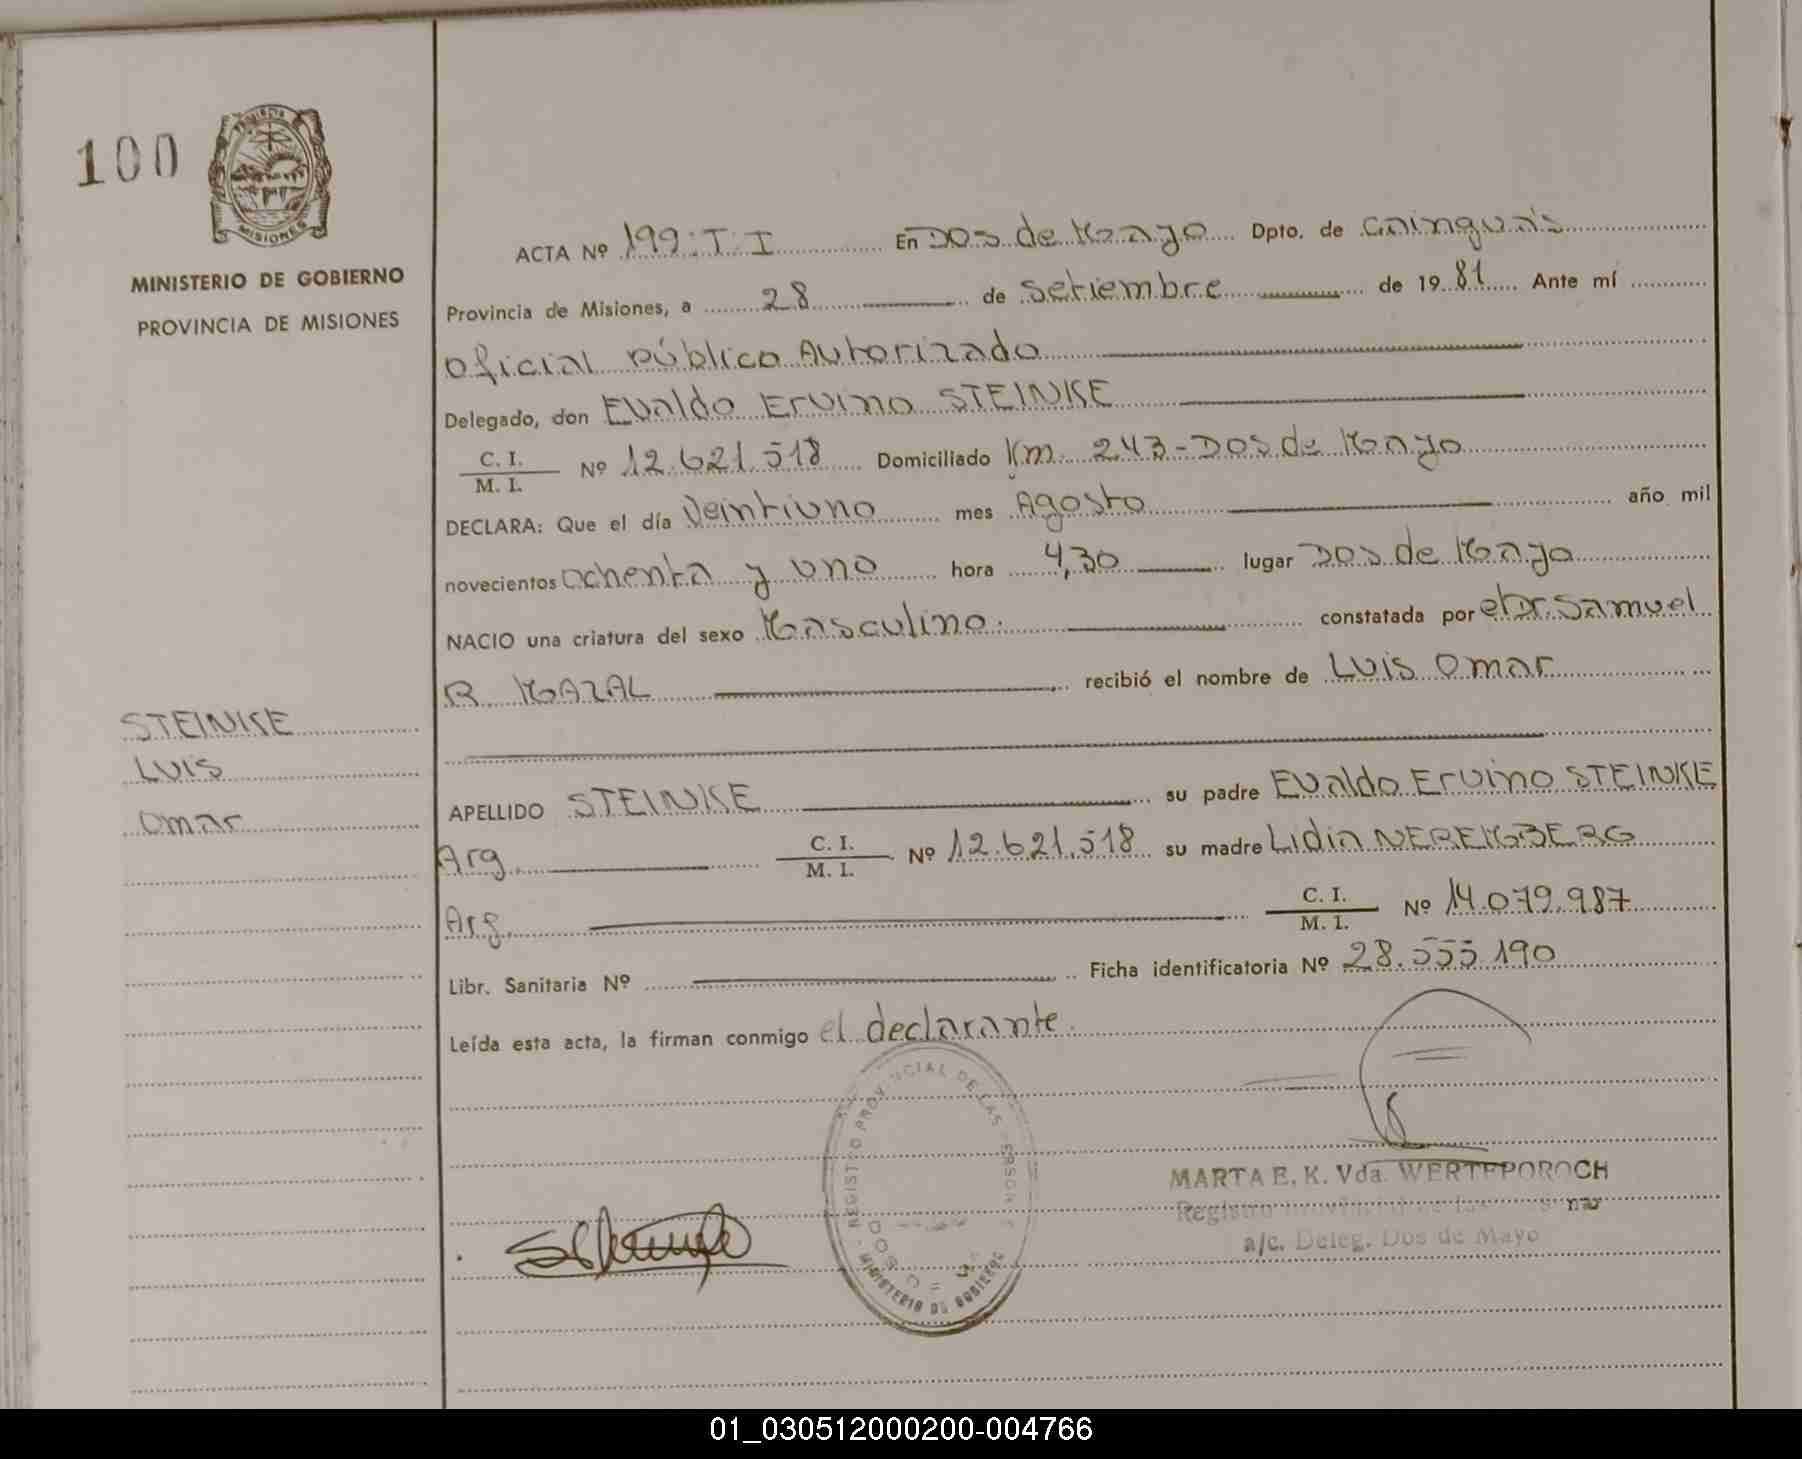 100
PROVINCIA DE
MISIONES
MINISTERIO DE GOBIERNO
PROVINCIA DE MISIONES
STEINKE
LUIS
Omar
ACTA Nº 199: T: I En DOS de Mayo Dpto. de Cainguás
Provincia de Misiones, a 28 de Setiembre de 1981 Ante mí
Oficial Público Autorizado
Delegado, don Evaldo Ervino STEINKE
C. I.
M. I. Nº 12.621.518 Domiciliado Km. 243-DOS de Mayo
DECLARA: Que el día Veintiuno mes Agosto año mil
novecientos ochenta y uno hora 4,30 lugar DOS de Mayo
NACIO una criatura del sexo Masculino. constatada por el Dr. Samuel
R MAZAL recibió el nombre de LUIS Omar
APELLIDO STEINKE su padre Evaldo Ervino STEINKE
Arg. C. I.
M. I. Nº 12.621.518 su madre Lidia NEREMBERG
Arg. C. I.
M. I. Nº 14.079.987
Libr. Sanitaria Nº Ficha identificatoria Nº 28.555.190
Leída esta acta, la firman conmigo el declarante.
REGISTRO PROVINCIAL DE LAS PERSON
MINISTERIO DE GOBIERNO
MARTA E. K. Vda. WERTEPOROCH
Registro
a/c. Deleg. Dos de Mayo
01_030512000200-004766